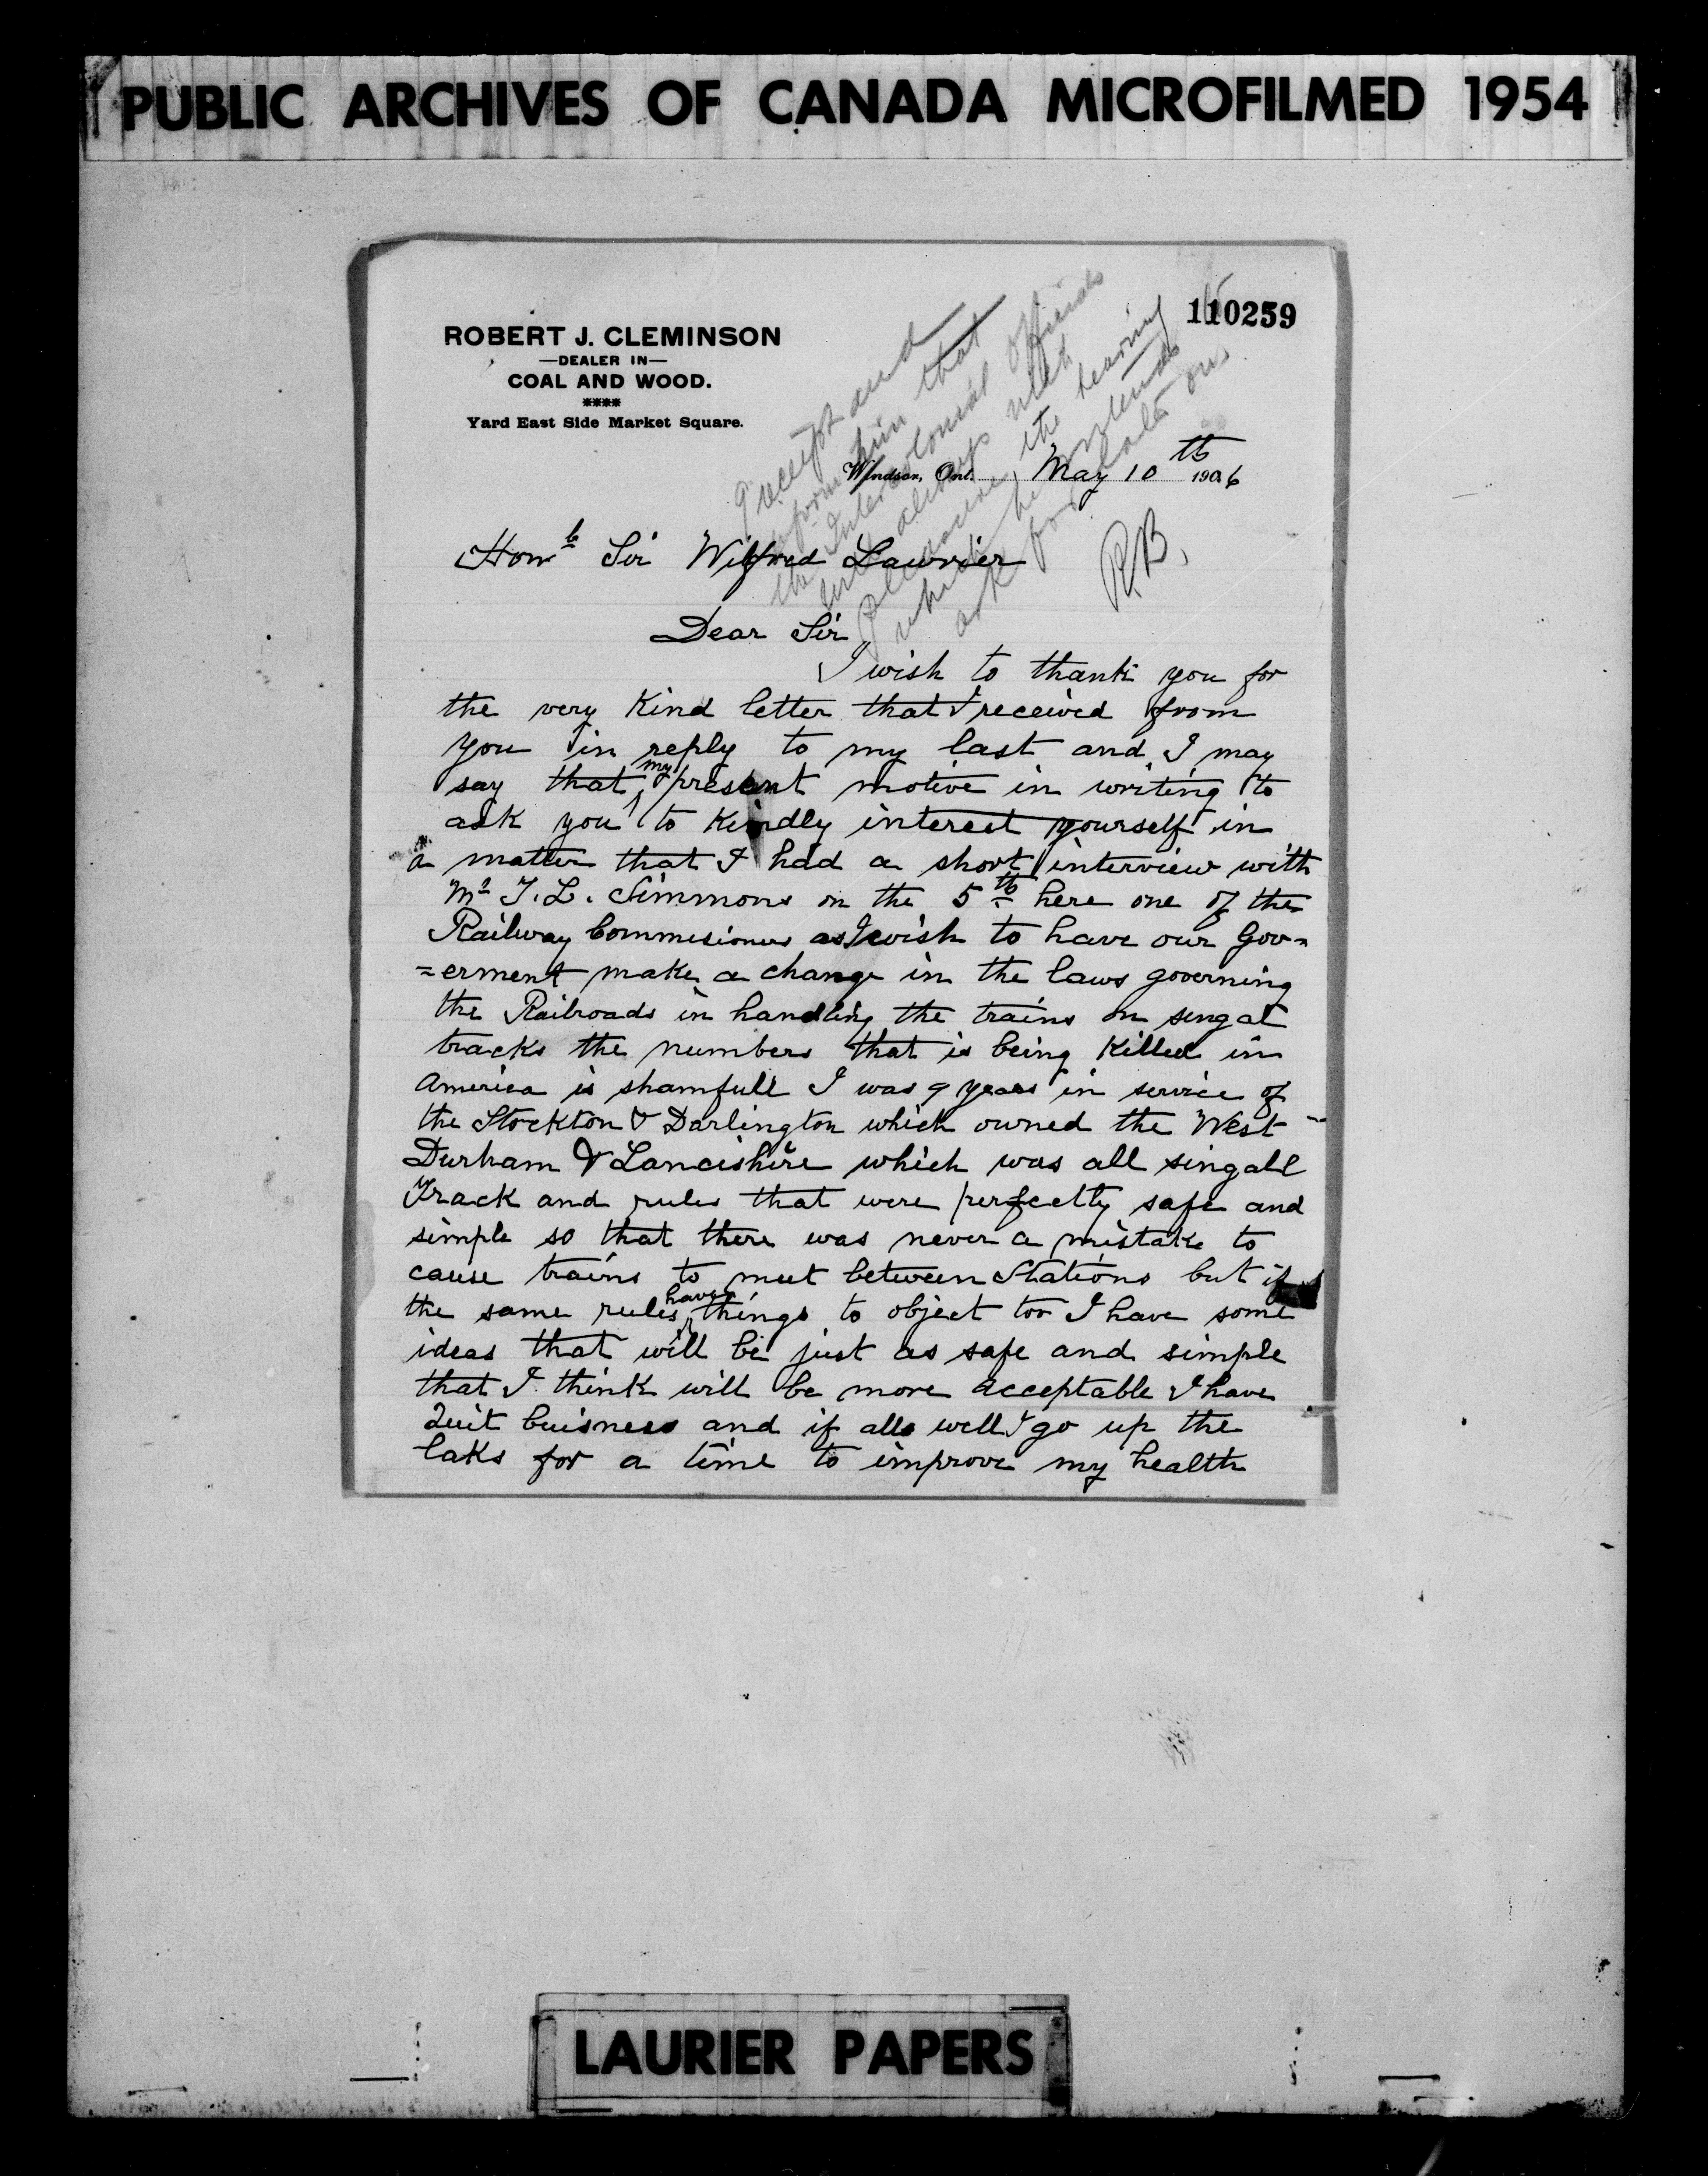 PUBLIC ARCHIVES OF CANADA MICROFILMED 1954
110259
ROBERT J. CLEMINSON
—DEALER IN—
COAL AND WOOD.
****
Yard East Side Market Square.
receipt and
inform him that
the Intercolonial officials
will always with
pleasure the hearing
which he
ask for
R.B.
Windsor, Ont. May 10th 1906
Honbl Sir Wilfred Laurier
Dear Sir
I wish to thank you for
the very Kind letter that I received from
you in reply to my last and I may
say that my present motive in writing to
ask you to Kindly interest yourself in
a matter that I had a short interview with
Mr T. L. Simmons on the 5th here one of the
Railway Commisioners as I wish to have our Gov=
=erment make a change in the laws governing
the Railroads in handling the trains on singal
tracks the numbers that is being Killed in
America is shamfull I was 9 years in service of
the Stockton & Darlington which owned the West
Durham & Lancishire which was all singall
Track and rules that were perfectly safe and
simple so that there was never a mistake to
cause trains to meet between Stations but if
the same rules have things to object too I have some
ideas that will be just as safe and simple
that I think will be more acceptable I have
Quit buisness and if alls well I go up the
laks for a time to improve my health
LAURIER PAPERS